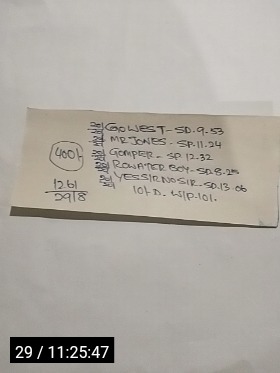 GOWEST - SD.9.53
MR JONES - SP.11.24
GOMPER - SP 12-32
ROWATER BOY - SD.8.25
YESSIRNOSIR - SD.13.06
10/- D. W/P.101.
400/-
1261
2918
29 / 11:25:47